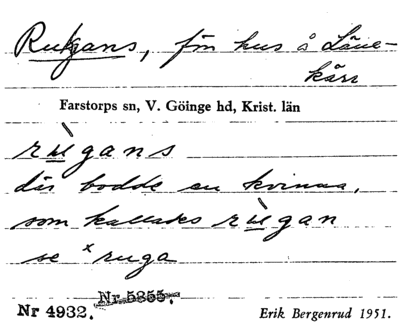 Rukgans, f͞m hus å Låne-
kärr
Farstorps sn, V. Göinge hd, Krist. län
rùgans
där bodde en kvinna,
som kallades rùgan
se × ruga
Nr 5855.
Nr 4932.
Erik Bergenrud 1951.